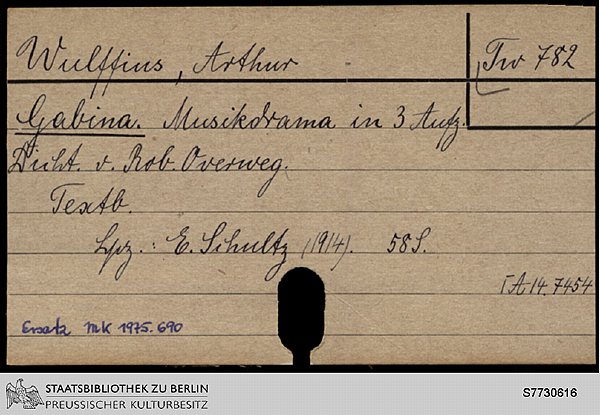 Wulffius, Arthur
Tw 782
Gabina. Musikdrama in 3 Aufz.
Dicht. v. Rob. Overweg.
Textb.
Lpz.: E. Schultz (1914). 58 S.
[A 14.7454
Ersatz MK 1975.690
STAATSBIBLIOTHEK ZU BERLIN
PREUSSISCHER KULTURBESITZ
S7730616